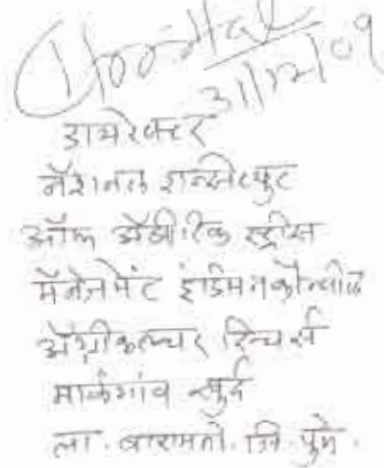 31/12/09
डायरेक्टर
नॅशनल इन्स्टिट्युट
ऑफ अॅबीटिक स्ट्रेस
मॅनेजमेंट इंडियन कौन्सील
अॅग्रीकल्चर रिसर्च
माळेगांव खुर्द
ता. बारामती. जि. पुणे.